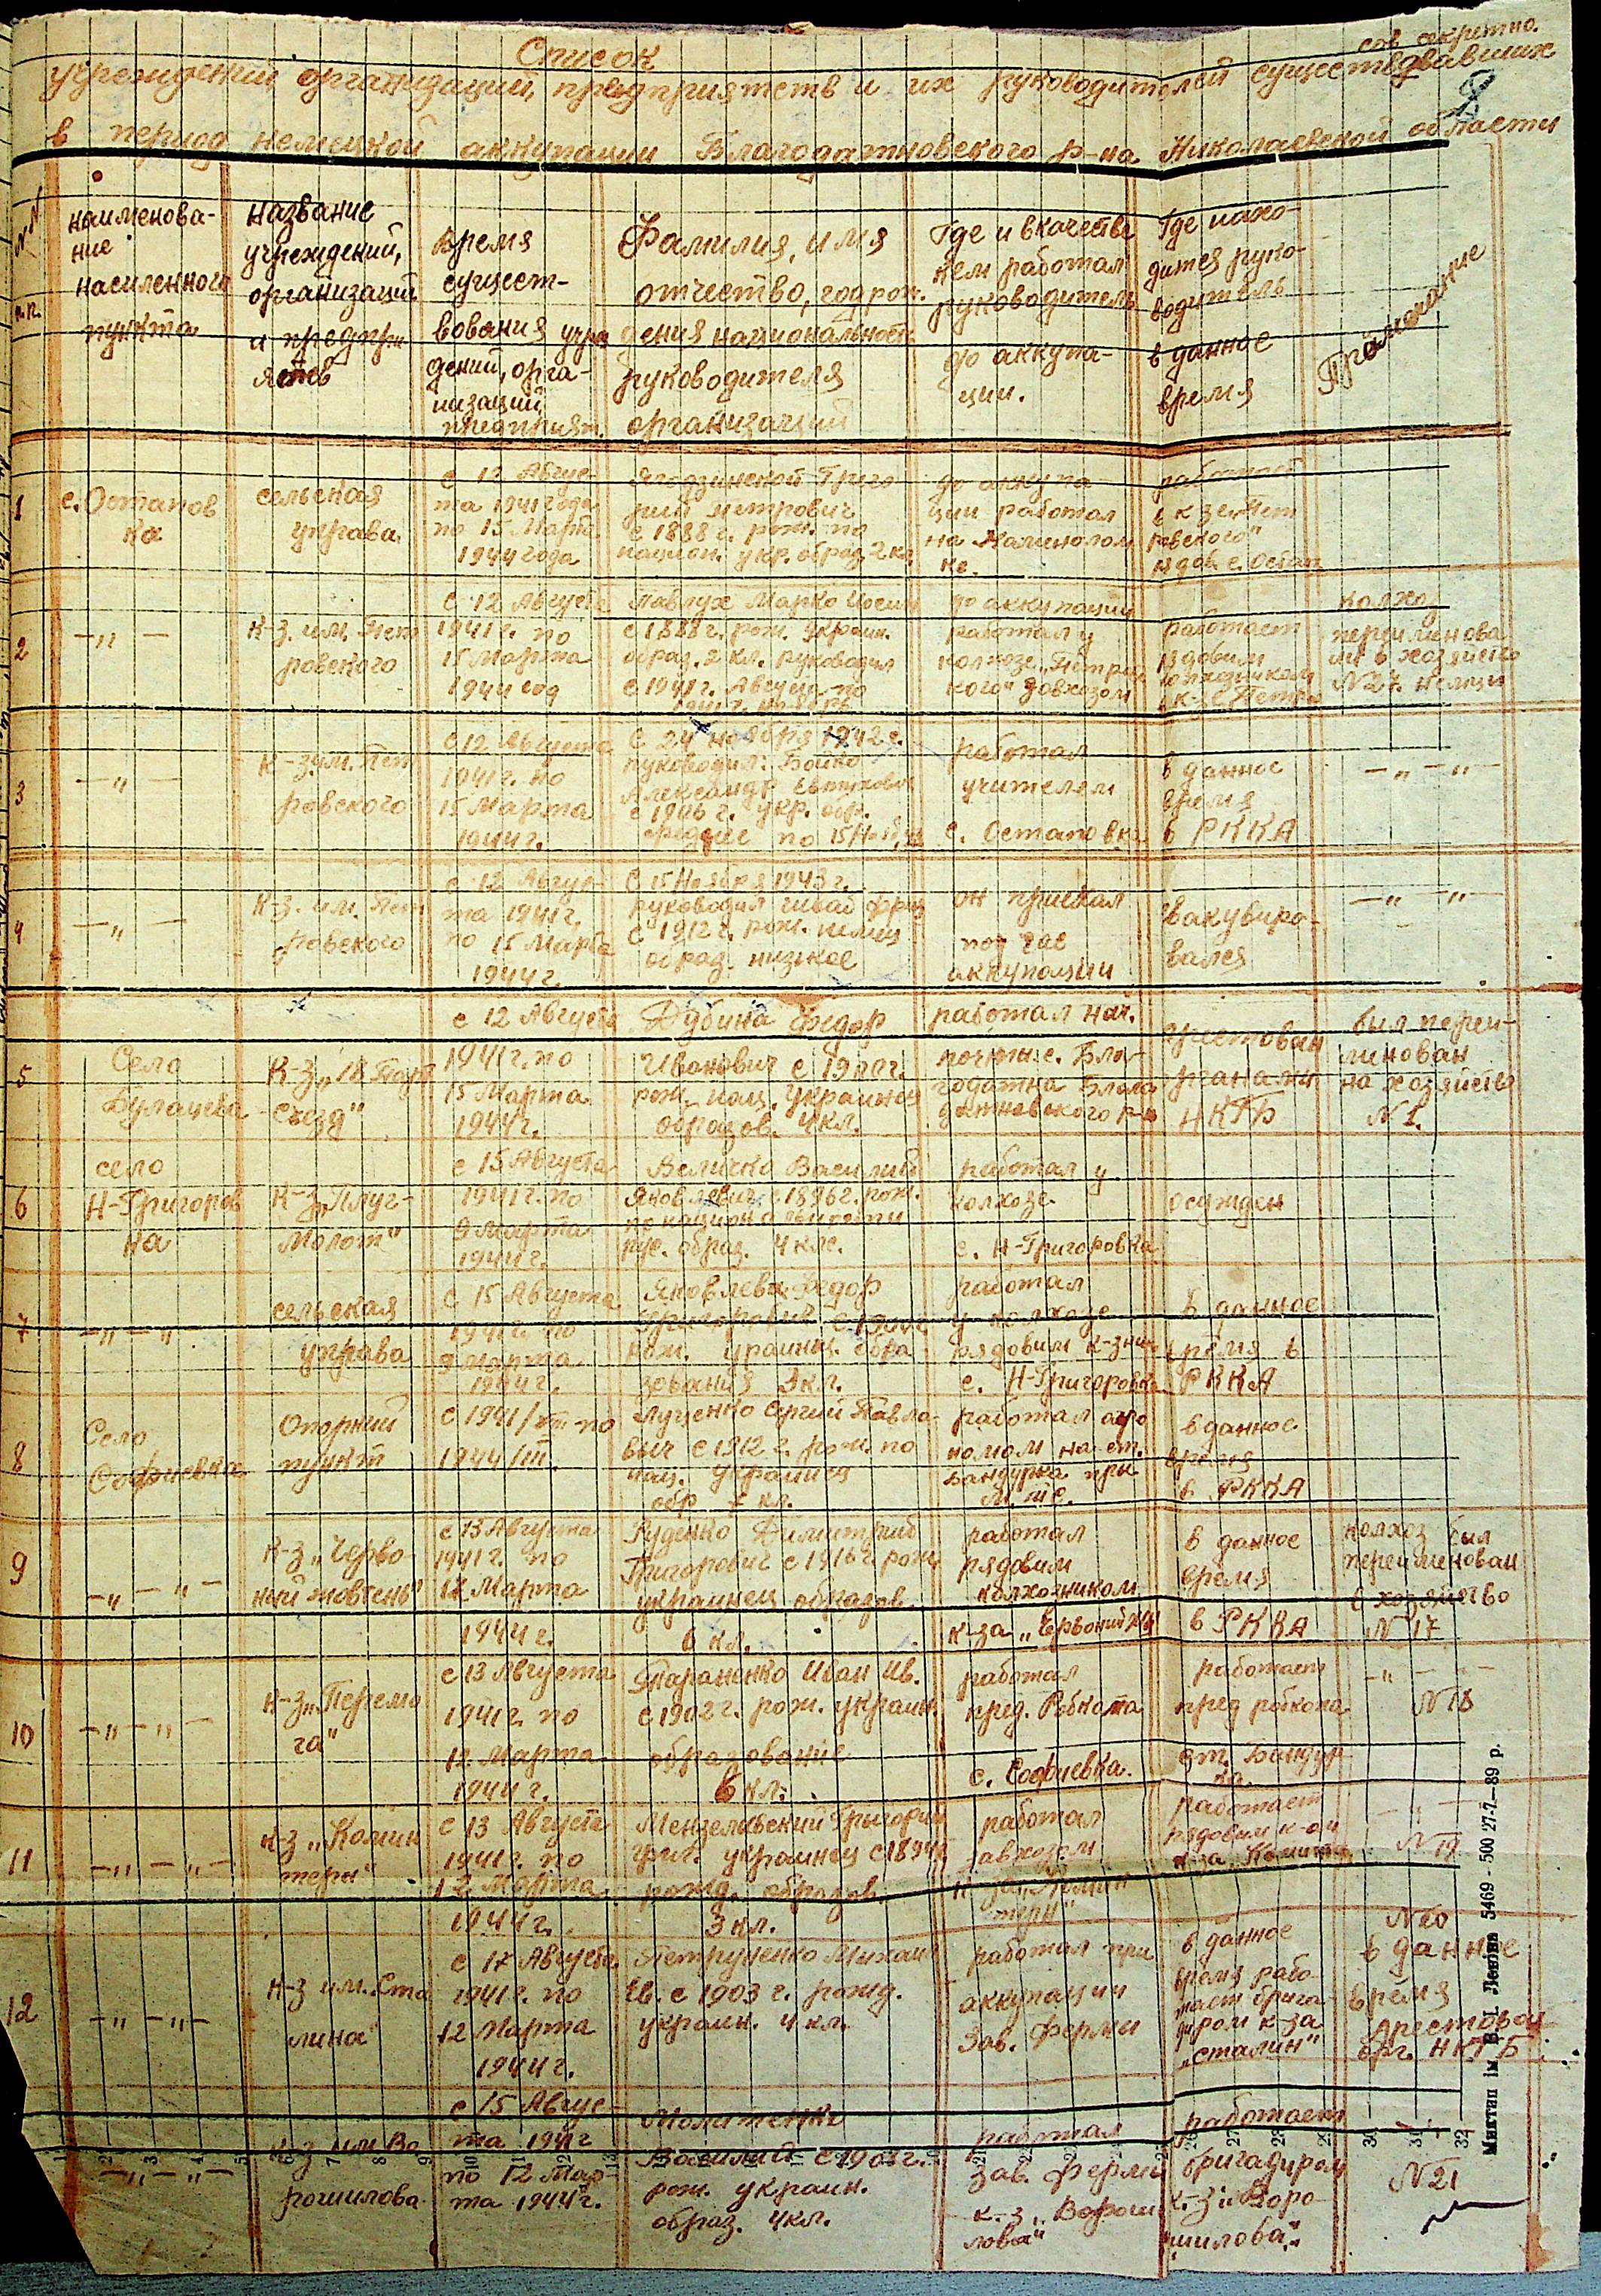 сов секретно.
Список
учреждений, организаций, предприятств и их руководителей существовавших
в период немецкой аккупации Благодатновского р-на Николаевской области
NN
п.п.
наименова-
ние
населенного
пункта
название
учреждений,
организаций
и предпри
ятев
время
сущест-
вования учре
дений, орга-
низаций
предприят.
Фамилия, имя
отчество, год рож.
дения национальность
руководителя
организаций
Где и вкачестве
кем работал
руководитель
до аккупа-
ции.
Где нахо-
дится руко-
водитель
в данное
время
Примечание
1
с. Остапов
ка
сельская
управа.
с 12 Авгус-
та 1941 года
по 15 Марта
1944 года
Ягодзинской Григо
рий Петрович
с 1888 г. рож. по
национ. укр. образ. 2 кл.
до аккупа
ции работал
на Каминолом
не.
работает
в к-зе „Пет
ровского"
рядов. с. Остап
2
-"-
к-з. им. Пет
ровского
с 12 Августа
1941 г. по
15 Марта
1944 год
Павлух Марко Иосип
с 1888 г. рож. украин.
образ. 2 кл. руководил
с 1941 г. Августа по
до аккупации
работал у
колхозе „Петров
кого" завхозом
работает
рядовим
колхозником
в к-зе Петро
колхоз
переименова
ли в хозяйство
N 27. немци
3
-"-
к-з им. Пет
ровского
с 12 Августа
1941 г. по
15 Марта
1944 г.
с 24 ноября 1942 г.
руководил: Бойко
Александр Евтихович
с 1906 г. укр. обр.
среднее по 15 Ноябр
работал
учителем
с. Остаповка
в данное
время
в РККА
-"-"-
4
-"-
к-з. им. Пет
ровского
с 12 Авгус-
та 1941 г.
по 15 Марта
1944 г.
с 15 Ноября 1943 г.
руководил Шваб Фриц
с 1912 г. рож. немец
образ. низкое
он приехал
под час
аккупации
эвакуиро-
вался
-"-"-
5
Село
Булацева
к-з „18 Парт
съезд"
с 12 Августа
1941 г. по
15 Марта
1944 г.
Дубина Федор
Иванович с 1900 г.
рож. нац. украинец
образов. 4 кл.
работал нач.
почты с. Бла-
годатна Благо
датновского р-на
арестован
органами
НКГБ
был переи-
минован
на хозяйство
N 1.
6
село
Н-Григоров
ка
к-з „Плуг-
Молот"
с 15 Августа
1941 г. по
9 Марта
1944 г.
Величко Василий
Яковлевич с 1896 г. рож.
по националности
рус. образ. 4 клс.
работал у
колхозе
с. Н-Григоровка
осужден
7
-"-"
сельская
управа
с 15 Августа
1941 г. по
9 Марта
1944 г.
Яковлева Федор
Григорович с 1900 г.
рож. украинц. обра
зования 3 кл.
работал
у колхозе
рядовим к-зник
с. Н-Григоровка
в данное
время в
РККА
8
Село
Софиевка
Опорний
пункт
с 1941/VIII по
1944/III.
Луценко Сергий Павло-
выч с 1912 г. рож. по
нац. украинец
обр 7 кл.
работал агро
номом на ст.
Бандурка при
М.Т.С.
в данное
время
в РККА
9
-"-"-
к-з „Черво-
ний жовтень"
с 13 Августа
1941 г. по
12 Марта
1944 г.
Руденко Димитрий
Григорович с 1916 г. рож
украинец образов.
6 кл.
работал
рядовим
колхозником
к-за „Червоний жов
в данное
время
в РККА
колхоз был
переименован
в хозяйство
N 17
10
-"-"-
к-з „Перемо
га"
с 13 Августа
1941 г. по
12 Марта
1944 г.
Тараненко Иван Ив.
с 1902 г. рож. украин
образование
6 кл.
работал
пред. Робкопа
с. Софиевка.
работает
пред робкопа
ст. Бандур
ка
-"- - -
N 18
11
-"-"-
к-з „Комин
терн"
с 13 Августа
1941 г. по
12 Марта
1944 г.
Мензелевский Григорий
Григ. украинец с 1894 г
рожд. образов.
3 кл.
работал
завхозом
к-за „Комин
терн"
работает
рядовим к-ом
к-за „Коминте
-"-
N 19
12
-"-"-
к-з им. Ста
лина"
с 17 Августа
1941 г. по
12 Марта
1944 г.
Петруненко Михаил
Ев. с 1903 г. рожд.
украин. 4 кл.
работал при
аккупации
Зав. Ферми
в данное
время рабо-
тает брига-
диром к-за
„Сталин"
N 20
в данное
время
Арестован
орг. НКГБ
-"-"-
к-з им Во
рошилова
с 15 Авгус-
та 1941 г
по 12 Мар-
та 1944 г.
Василий с 1903 г.
рож. украин.
образ. 4 кл.
работал
зав. Ферми
к-з „Вороши
лова"
работает
бригадиром
к-з „Воро-
шилова".
N 21
Миктип ім. В. І. Леніна 5469 - 500 27-7—89 р.